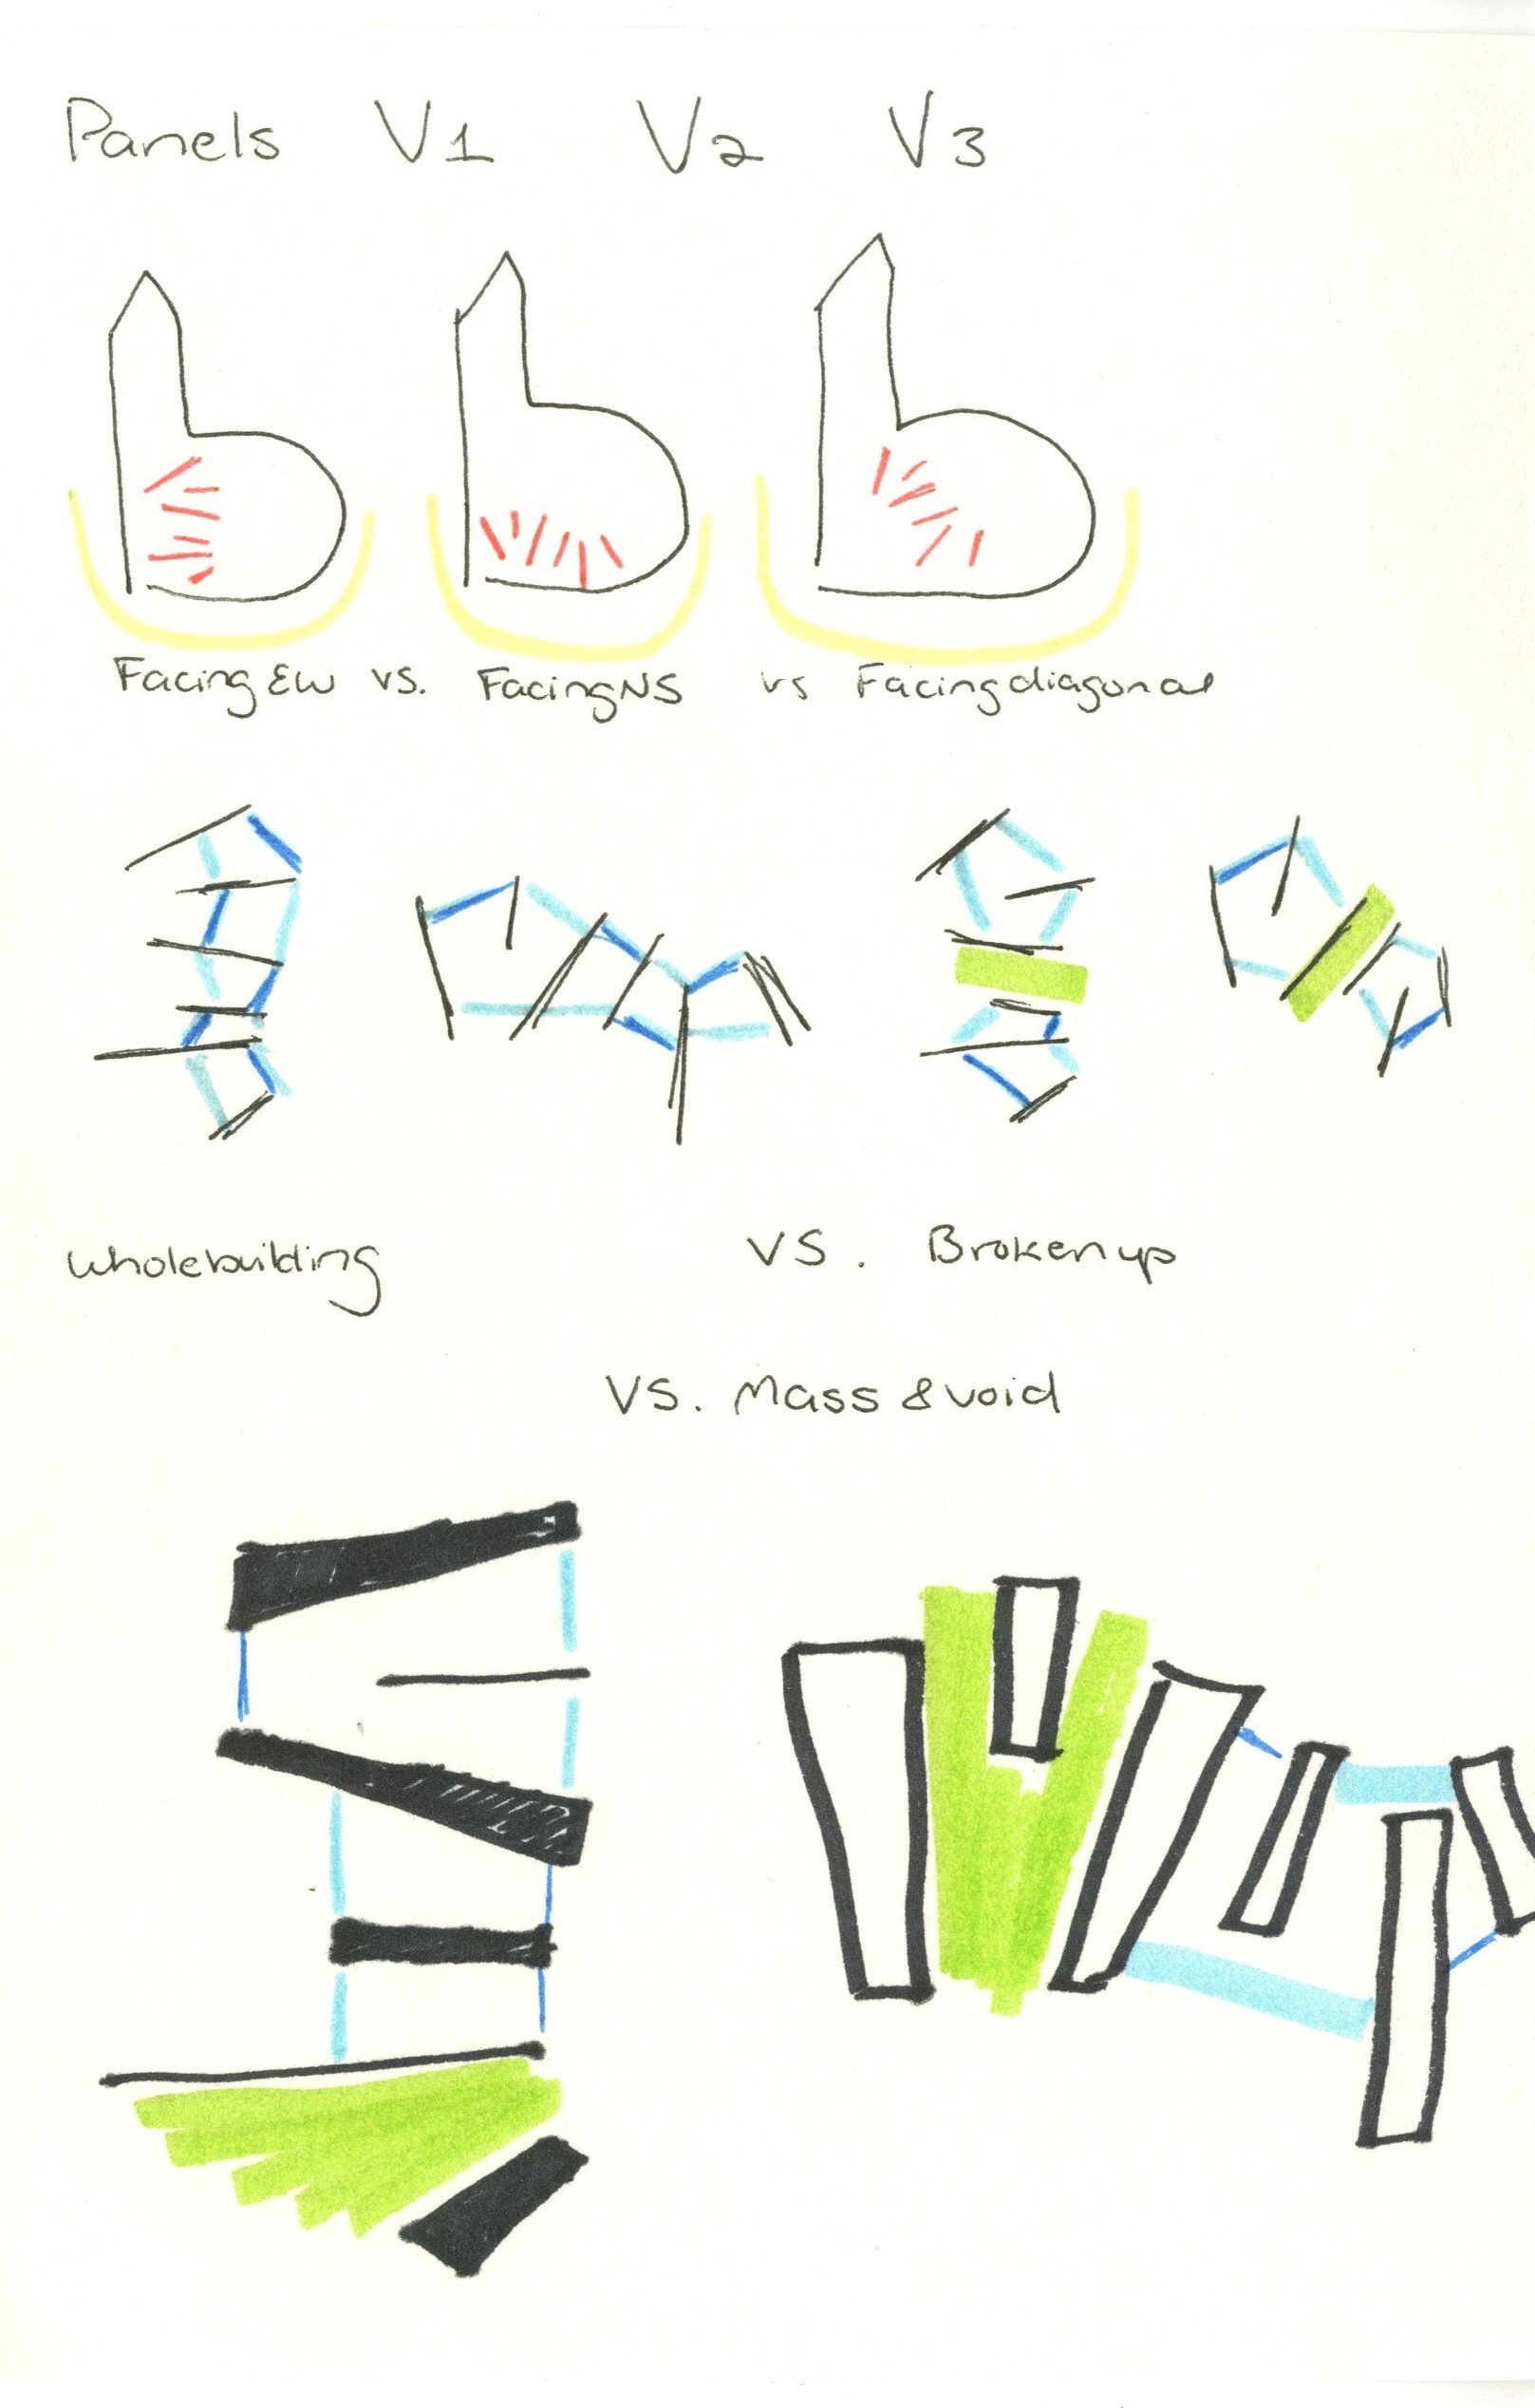 Panels V1 V2 V3
Facing EW vs. Facing NS vs Facing diagonal
Whole building vs. Broken up
vs. Mass & void